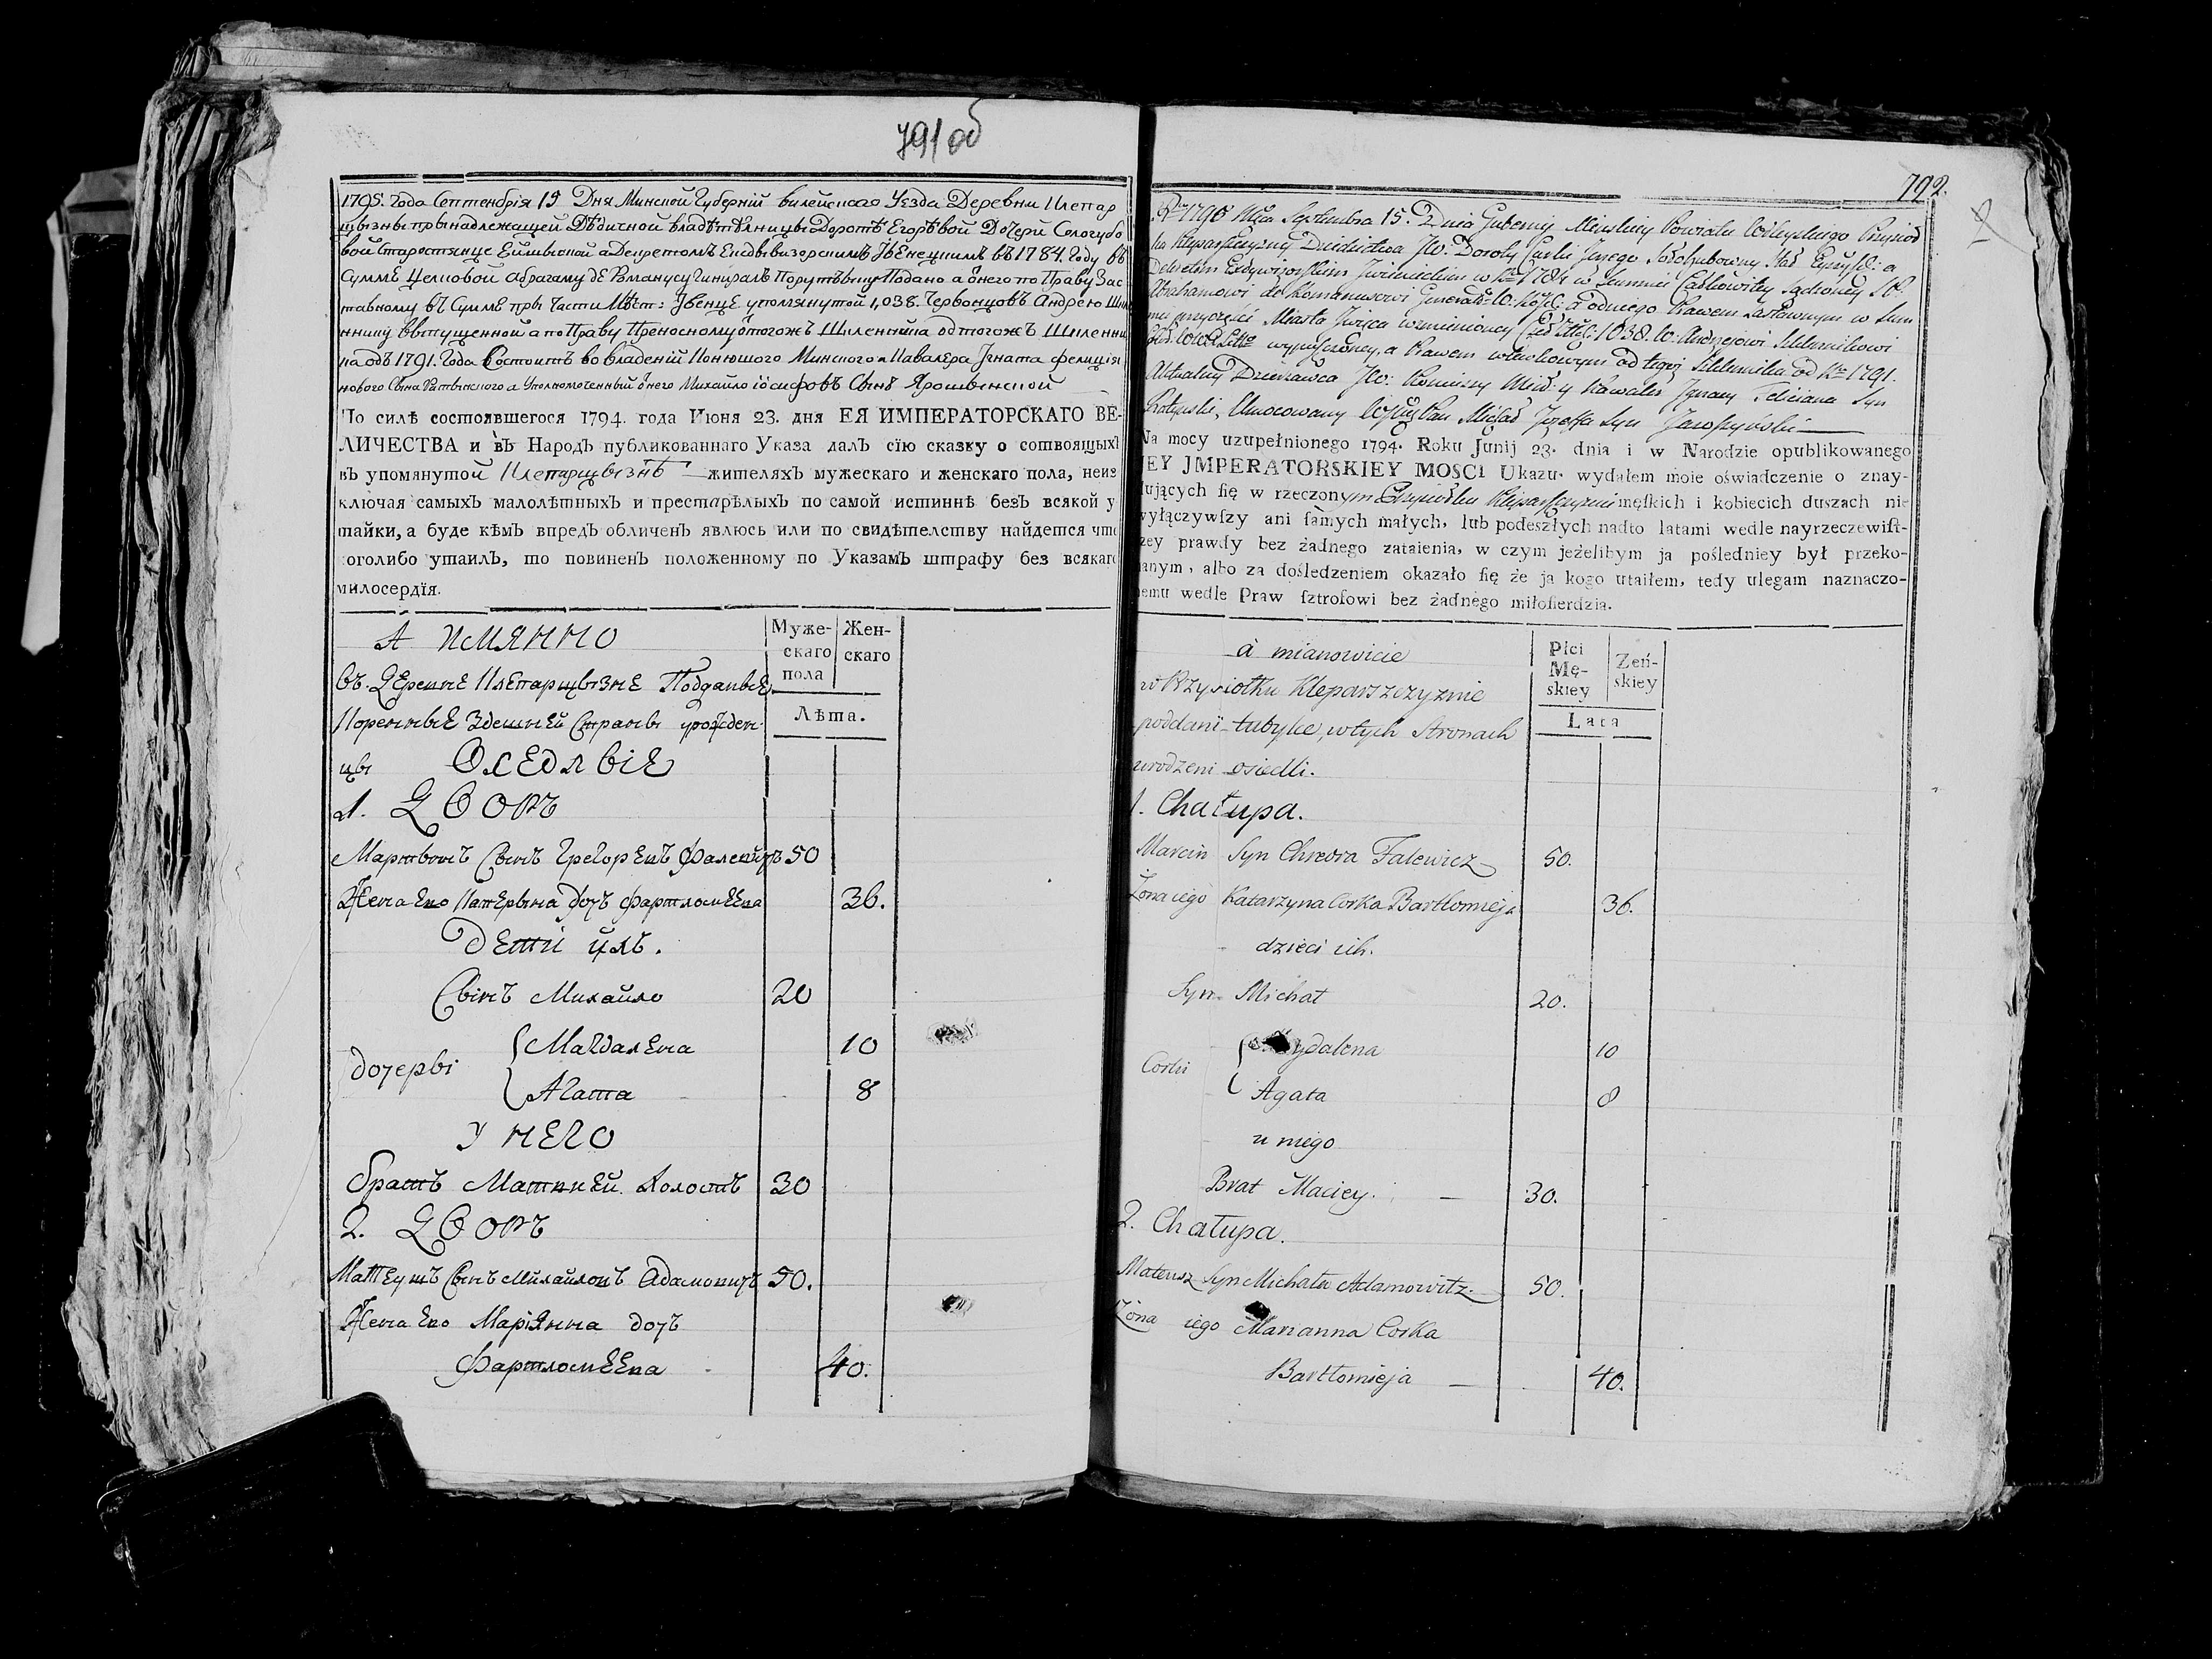 791 об
1795. года Септембрія 15 Дня Минской Губерній вилейскаго Уезда Деревни Клепар
щызны прынадлежащей Дѣдичной владѣтѣлницы Доротѣ Егорѣвой Дочерй Сологубо
вой Старостянце Ейшыской а Декретомъ Ексдывизорскимъ Ивенецкимъ въ 1784. Году въ
Суммѣ Целковой Абрагаму дѣ Романусу Гиниралъ Порутчыку Подано а онего по Праву Зас
тавному въ Суммѣ пры Части Мѣст: Ивенце упомянутой 1,038. Червонцовъ Андрею
впущенной а по Праву Преносному отогожъ Шкленника
на одъ 1791. Года Состоитъ во владеній Конюшого Минского и Кавалѣра Игната фелиція
нового Сына а Уполномоченный онего Михайло іосифовъ Сынъ Ярошынской
По силѣ состоявшегося 1794. года Июня 23. дня ЕЯ ИМПЕРАТОРСКАГО ВЕ-
ЛИЧЕСТВА и въ Народъ публикованнаго Указа далъ сїю сказку о сотвоящыхъ
въ упомянутой Клепарщызнѣ жителяхъ мужескаго и женскаго пола, неиз
ключая самыхъ малолѣтныхъ и престарѣлыхъ по самой истиннѣ безъ всякой у
тайки, а буде кѣмъ впредъ обличенъ явлюсь или по свидѣтелству найдется что
оголибо утаилъ, то повиненъ положенному по Указамъ штрафу без всякаго
милосердїя.
А имянно
Муже-
скаго
пола
Жен-
скаго
Лѣта.
въ Деревне Клепарщызне Подданые
Коренные Здешней Страны урожден
цы Оседлые
1. Дворъ
Мартынъ Сынъ Грегоревъ Фалевичъ 50
Жена Его Катерына дочъ Фартломеева 36.
Дети ихъ.
Сынъ Михайло 20
дочеры
Магдалена 10
Агата 8
У него
братъ Матвей Холостъ 30
2. Дворъ
Матеушъ Сынъ Михайловъ Адамовичъ 50.
Жена Его Маріянна дочъ
Фартломеева 40.
792.
2
Rku 1795 Mca Septembra 15. Dnia Gubernij Minskiey Powiatu Wileyskiego Przysioł
ku Kleparszczyzny Dziedzictwa JW. Doroty Corki Jerzego Sołohubowny Star: Eyszyski: a
Dekretem Exdywizorskim Iwienieckim w Rku 1784 w Summie Całkowitey Sądzoney JW.
Abrahamowi de Romanusowi a odniego Prawem zastawnym w Sum
mie przyczęści Miasta Iwieńca wzmienioney 1038. W. Andrzejowi Szklennikowi
wypuszczoney, a Prawem wlewkowym od tegoż Szklennika od Rku 1791.
Aktualny Dzierżawca JW. Koniuszy Miń: y Kawaler Ignacy Feliciana Syn
Umocowany Michał Jozeffa Syn Jaroszyński
Na mocy uzupełnionego 1794. Roku Junij 23. dnia i w Narodzie opublikowanego
JEY JMPERATORSKIEY MOSCI Ukazu. wydałem moie oświadczenie o znay-
dujących się w rzeczonym Przysiołku Kleparszczyznie męskich i kobiecich duszach nie
wyłączywszy ani samych małych, lub podeszłych nadto latami wedle nayrzeczewist-
szey prawdy bez żadnego zataienia, w czym jeżelibym ja pośledniey był przeko-
nanym, albo za dośledzeniem okazało się że ja kogo utaiłem, tedy ulegam naznaczo-
nemu wedle Praw sztrofowi bez żadnego miłosierdzia.
à mianowicie
Płci
Mę-
skiey
Zeń-
skiey
Lata
w Przysiołku Kleparszczyznie
poddani tubylce, w tych stronach
urodzeni osiedli.
1. Chałupa.
Marcin Syn Chreora Falewicz 50.
Żona iego Katarzyna Corka Bartłomieja 36.
dzieci ich.
Syn Michał 20.
Corki
Magdalena 10
Agata 8
u niego
Brat Maciey. 30.
2. Chałupa.
Mateusz Syn Michała Adamowicz 50.
Żona iego Marianna Corka
Bartłomieja 40.